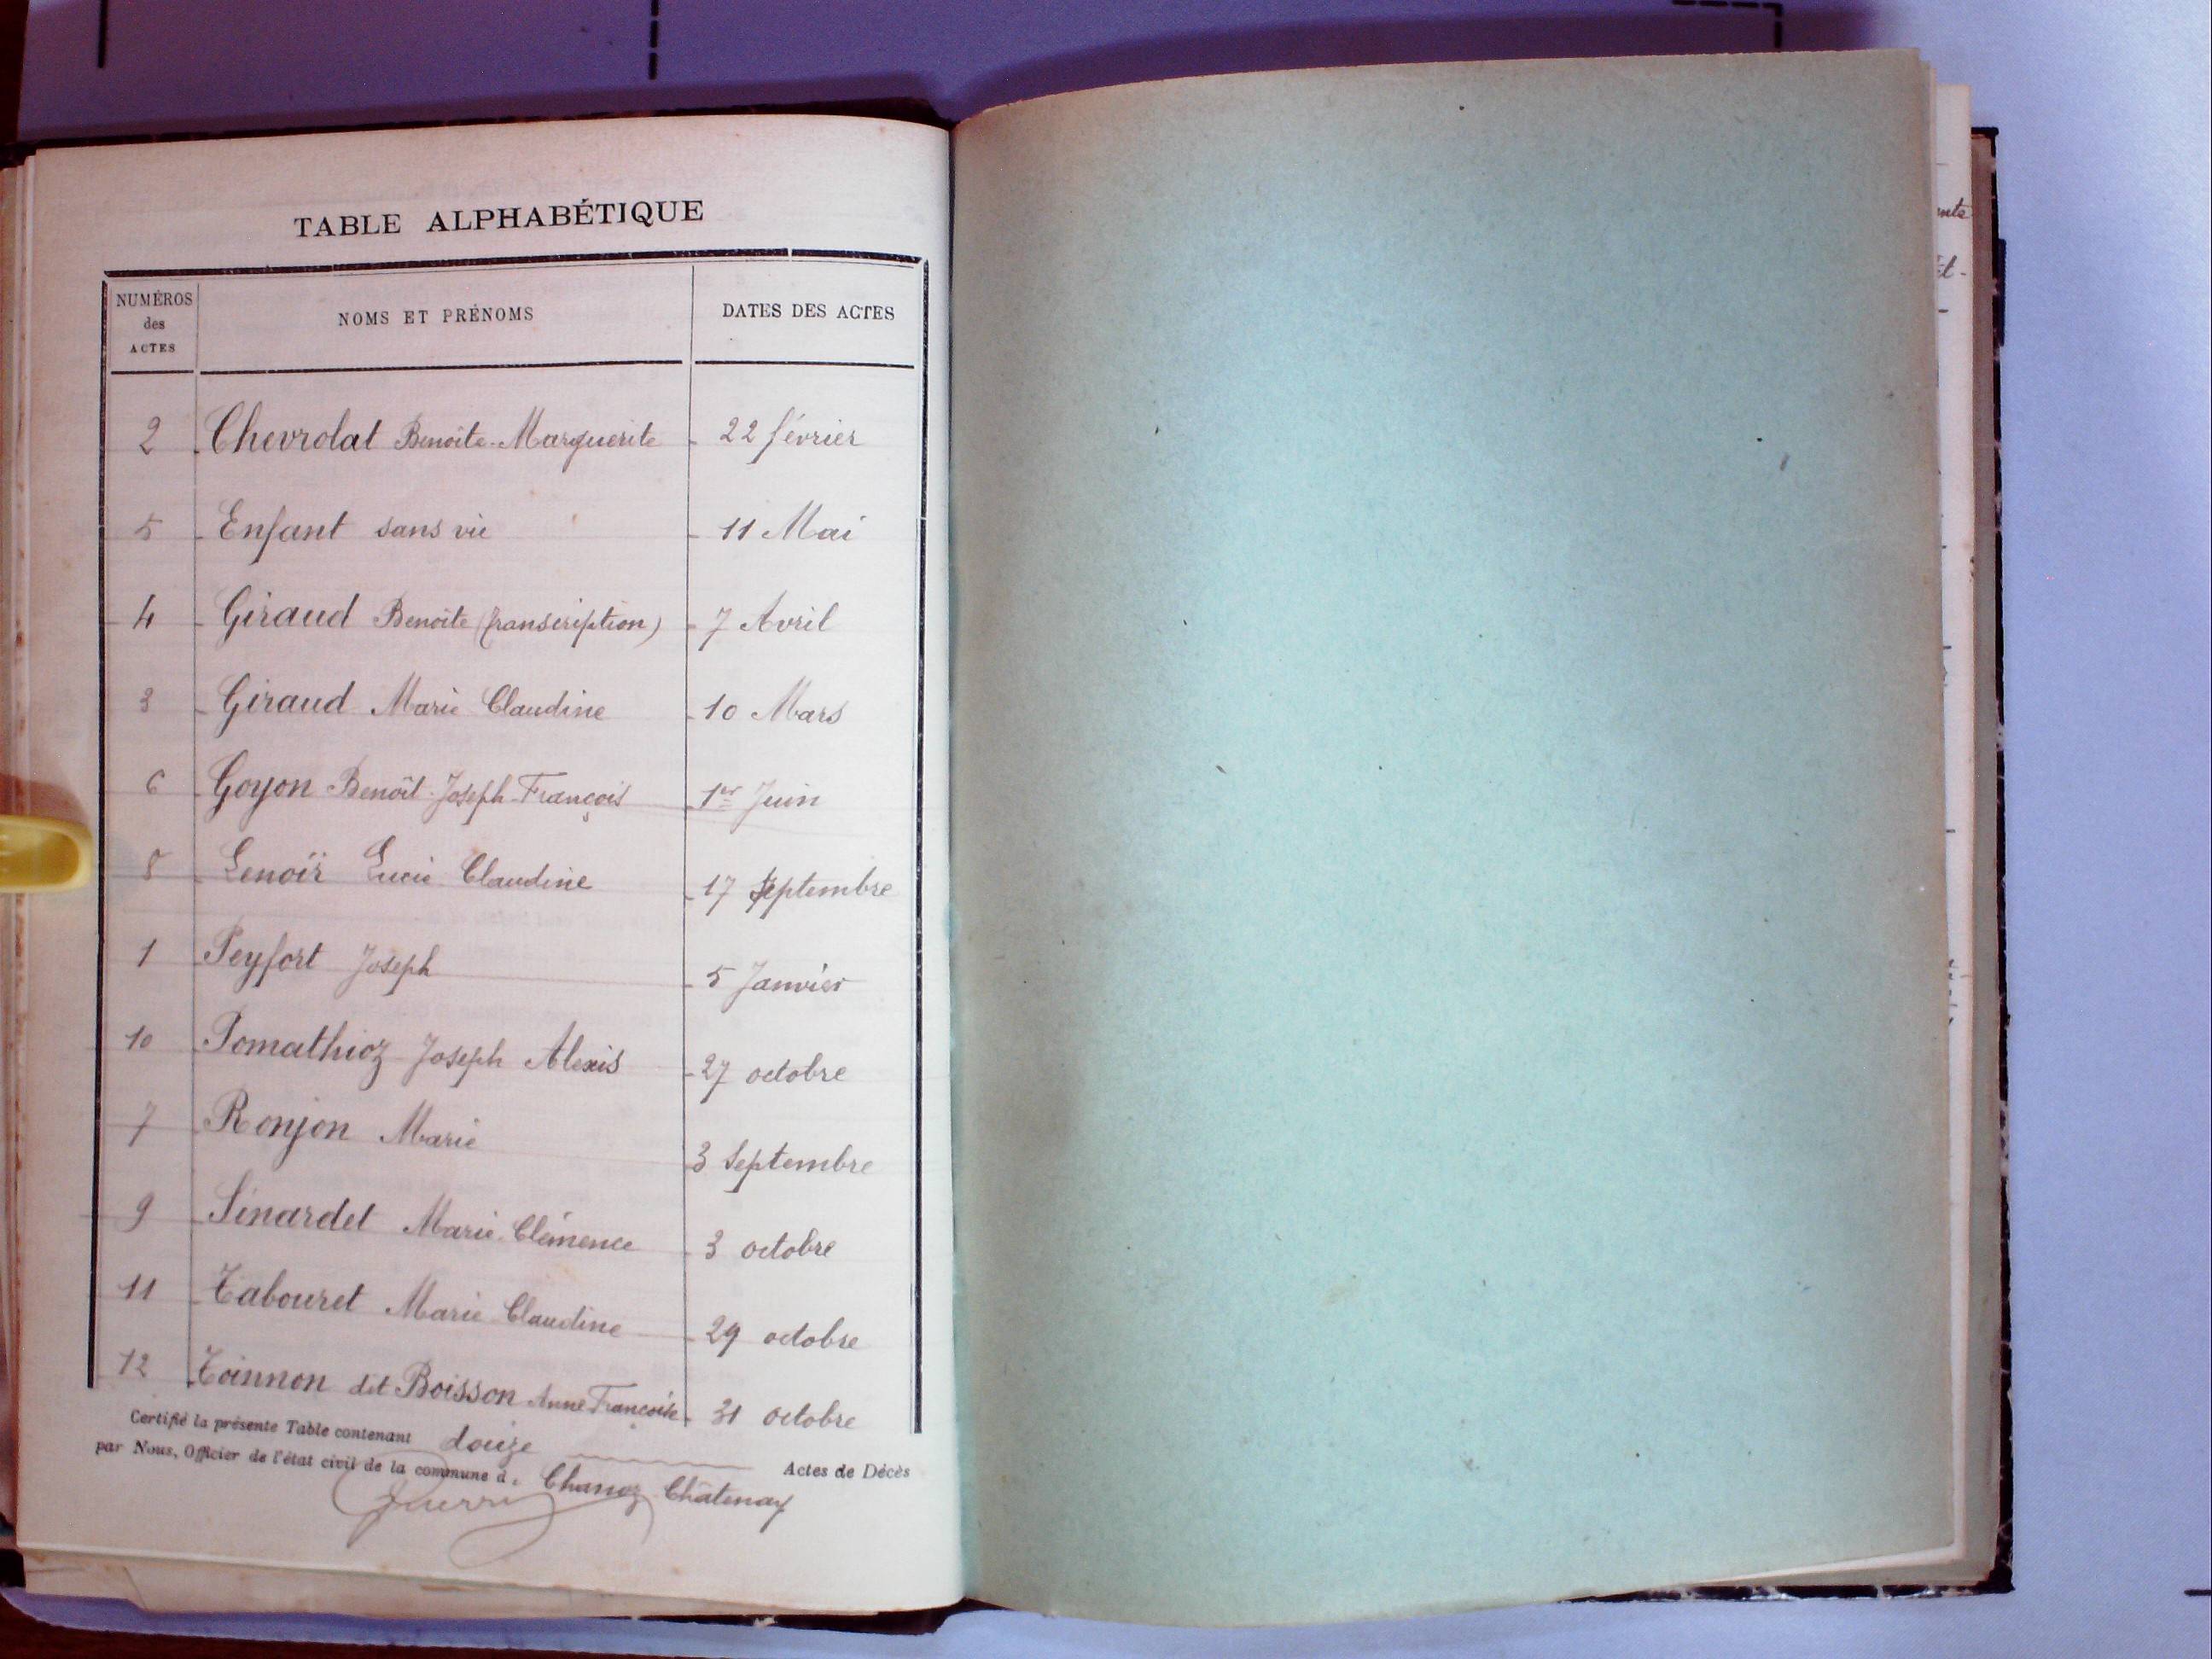 TABLE ALPHABÉTIQUE
NUMÉROS des ACTES NOMS ET PRÉNOMS DATES DES ACTES
2 Chevrolat Benoîte-Marguerite 22 février
5 Enfant sans vie 11 Mai
4 Giraud Benoîte (transcription) 7 Avril
3 Giraud Marie Claudine 10 Mars
6 Goyon Benoît-Joseph-François 1er Juin
8 Lenoir Lucie Claudine 17 Septembre
1 Peyfort Joseph 5 Janvier
10 Pomathioz Joseph Alexis 27 octobre
7 Ronjon Marie 3 Septembre
9 Sinardet Marie-Clémence 3 octobre
11 Tabouret Marie-Claudine 29 octobre
12 Toinnon dit Boisson Anne Françoise 31 octobre
Certifié la présente Table contenant douze Actes de Décès
par Nous, Officier de l'état civil de la commune d. Chanoz-Châtenay